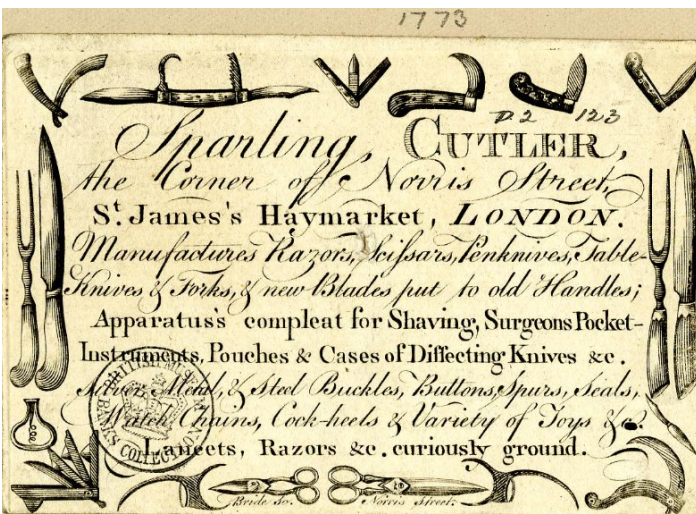 1773
D.2 123
Sparling, CUTLER,
the Corner of Norris Street,
St. James's Haymarket, LONDON.
Manufactures Razors, Scissars, Penknives, Table-
Knives & Forks, & new Blades put to old Handles;
Apparatus's compleat for Shaving, Surgeons Pocket-
Instruments, Pouches & Cases of Diſſecting Knives &c.
Silver, Metal, & Steel Buckles, Buttons, Spurs, Seals,
Watch Chains, Cock-heels & Variety of Toys &c.
Lancets, Razors &c. curiously ground.
BRITISH MUSEUM
BANKS COLLECTION
Bride Sc. Norris Street.